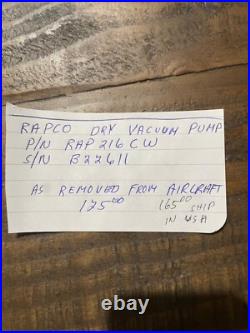 RAPCO DRY VACUUM PUMP
P/N RAP 216 CW
S/N B22611
AS REMOVED FROM AIRCRAFT
125⁰⁰ 165⁰⁰ SHIP
IN USA
ctdrums.com